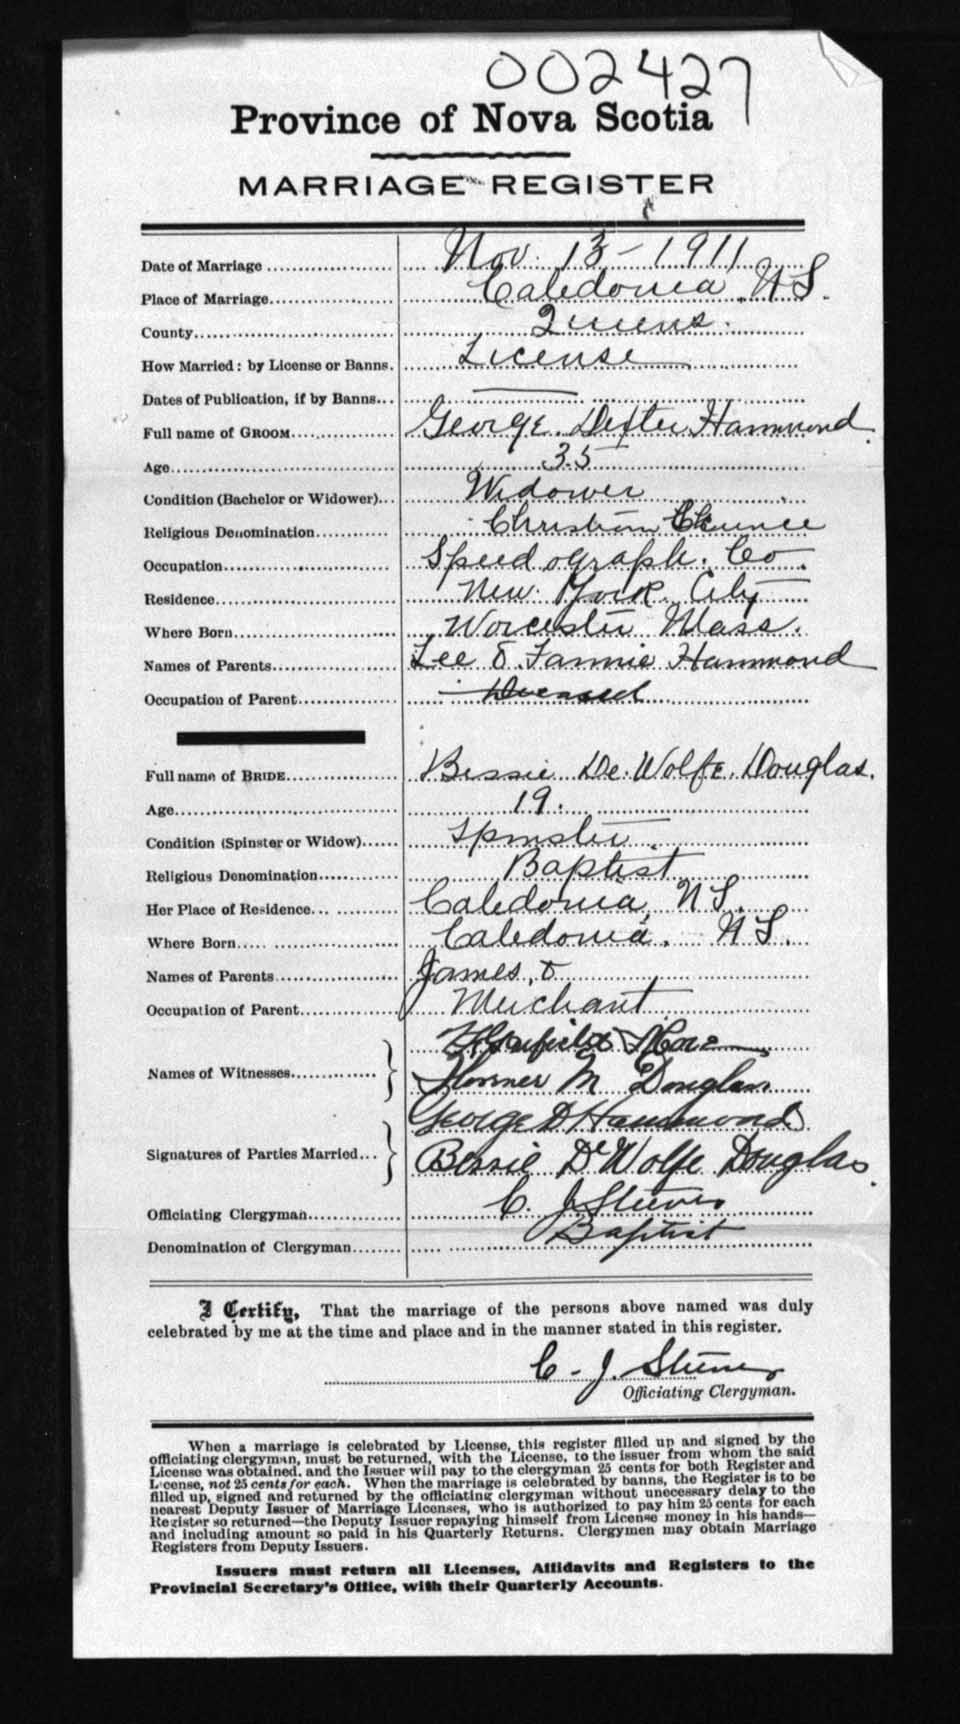 002427
Province of Nova Scotia
MARRIAGE REGISTER
Date of Marriage Nov. 13 - 1911
Place of Marriage Caledonia, N.S.
County Queens.
How Married: by License or Banns. License
Dates of Publication, if by Banns —
Full name of GROOM George. Dexter Hammond.
Age 35
Condition (Bachelor or Widower) Widower
Religious Denomination Christian
Occupation Speedograph. Co.
Residence New York City
Where Born Worcester Mass.
Names of Parents Lee & Fannie Hammond
Occupation of Parent Deceased
Full name of BRIDE Bessie De. Wolfe. Douglas.
Age 19.
Condition (Spinster or Widow) Spinster.
Religious Denomination Baptist
Her Place of Residence Caledonia, N.S.
Where Born Caledonia. N.S.
Names of Parents James, &
Occupation of Parent Merchant
Names of Witnesses
M Douglas
George D Hammond
Signatures of Parties Married
Bessie De Wolfe Douglas.
Officiating Clergyman C. J. Steeves
Denomination of Clergyman Baptist
I Certify, That the marriage of the persons above named was duly
celebrated by me at the time and place and in the manner stated in this register.
C. J. Steeves
Officiating Clergyman.
When a marriage is celebrated by License, this register filled up and signed by the
officiating clergyman, must be returned, with the License, to the issuer from whom the said
License was obtained, and the Issuer will pay to the clergyman 25 cents for both Register and
License, not 25 cents for each. When the marriage is celebrated by banns, the Register is to be
filled up, signed and returned by the officiating clergyman without unnecessary delay to the
nearest Deputy Issuer of Marriage Licenses, who is authorized to pay him 25 cents for each
Register so returned—the Deputy Issuer repaying himself from License money in his hands—
and including amount so paid in his Quarterly Returns. Clergymen may obtain Marriage
Registers from Deputy Issuers.
Issuers must return all Licenses, Affidavits and Registers to the
Provincial Secretary's Office, with their Quarterly Accounts.